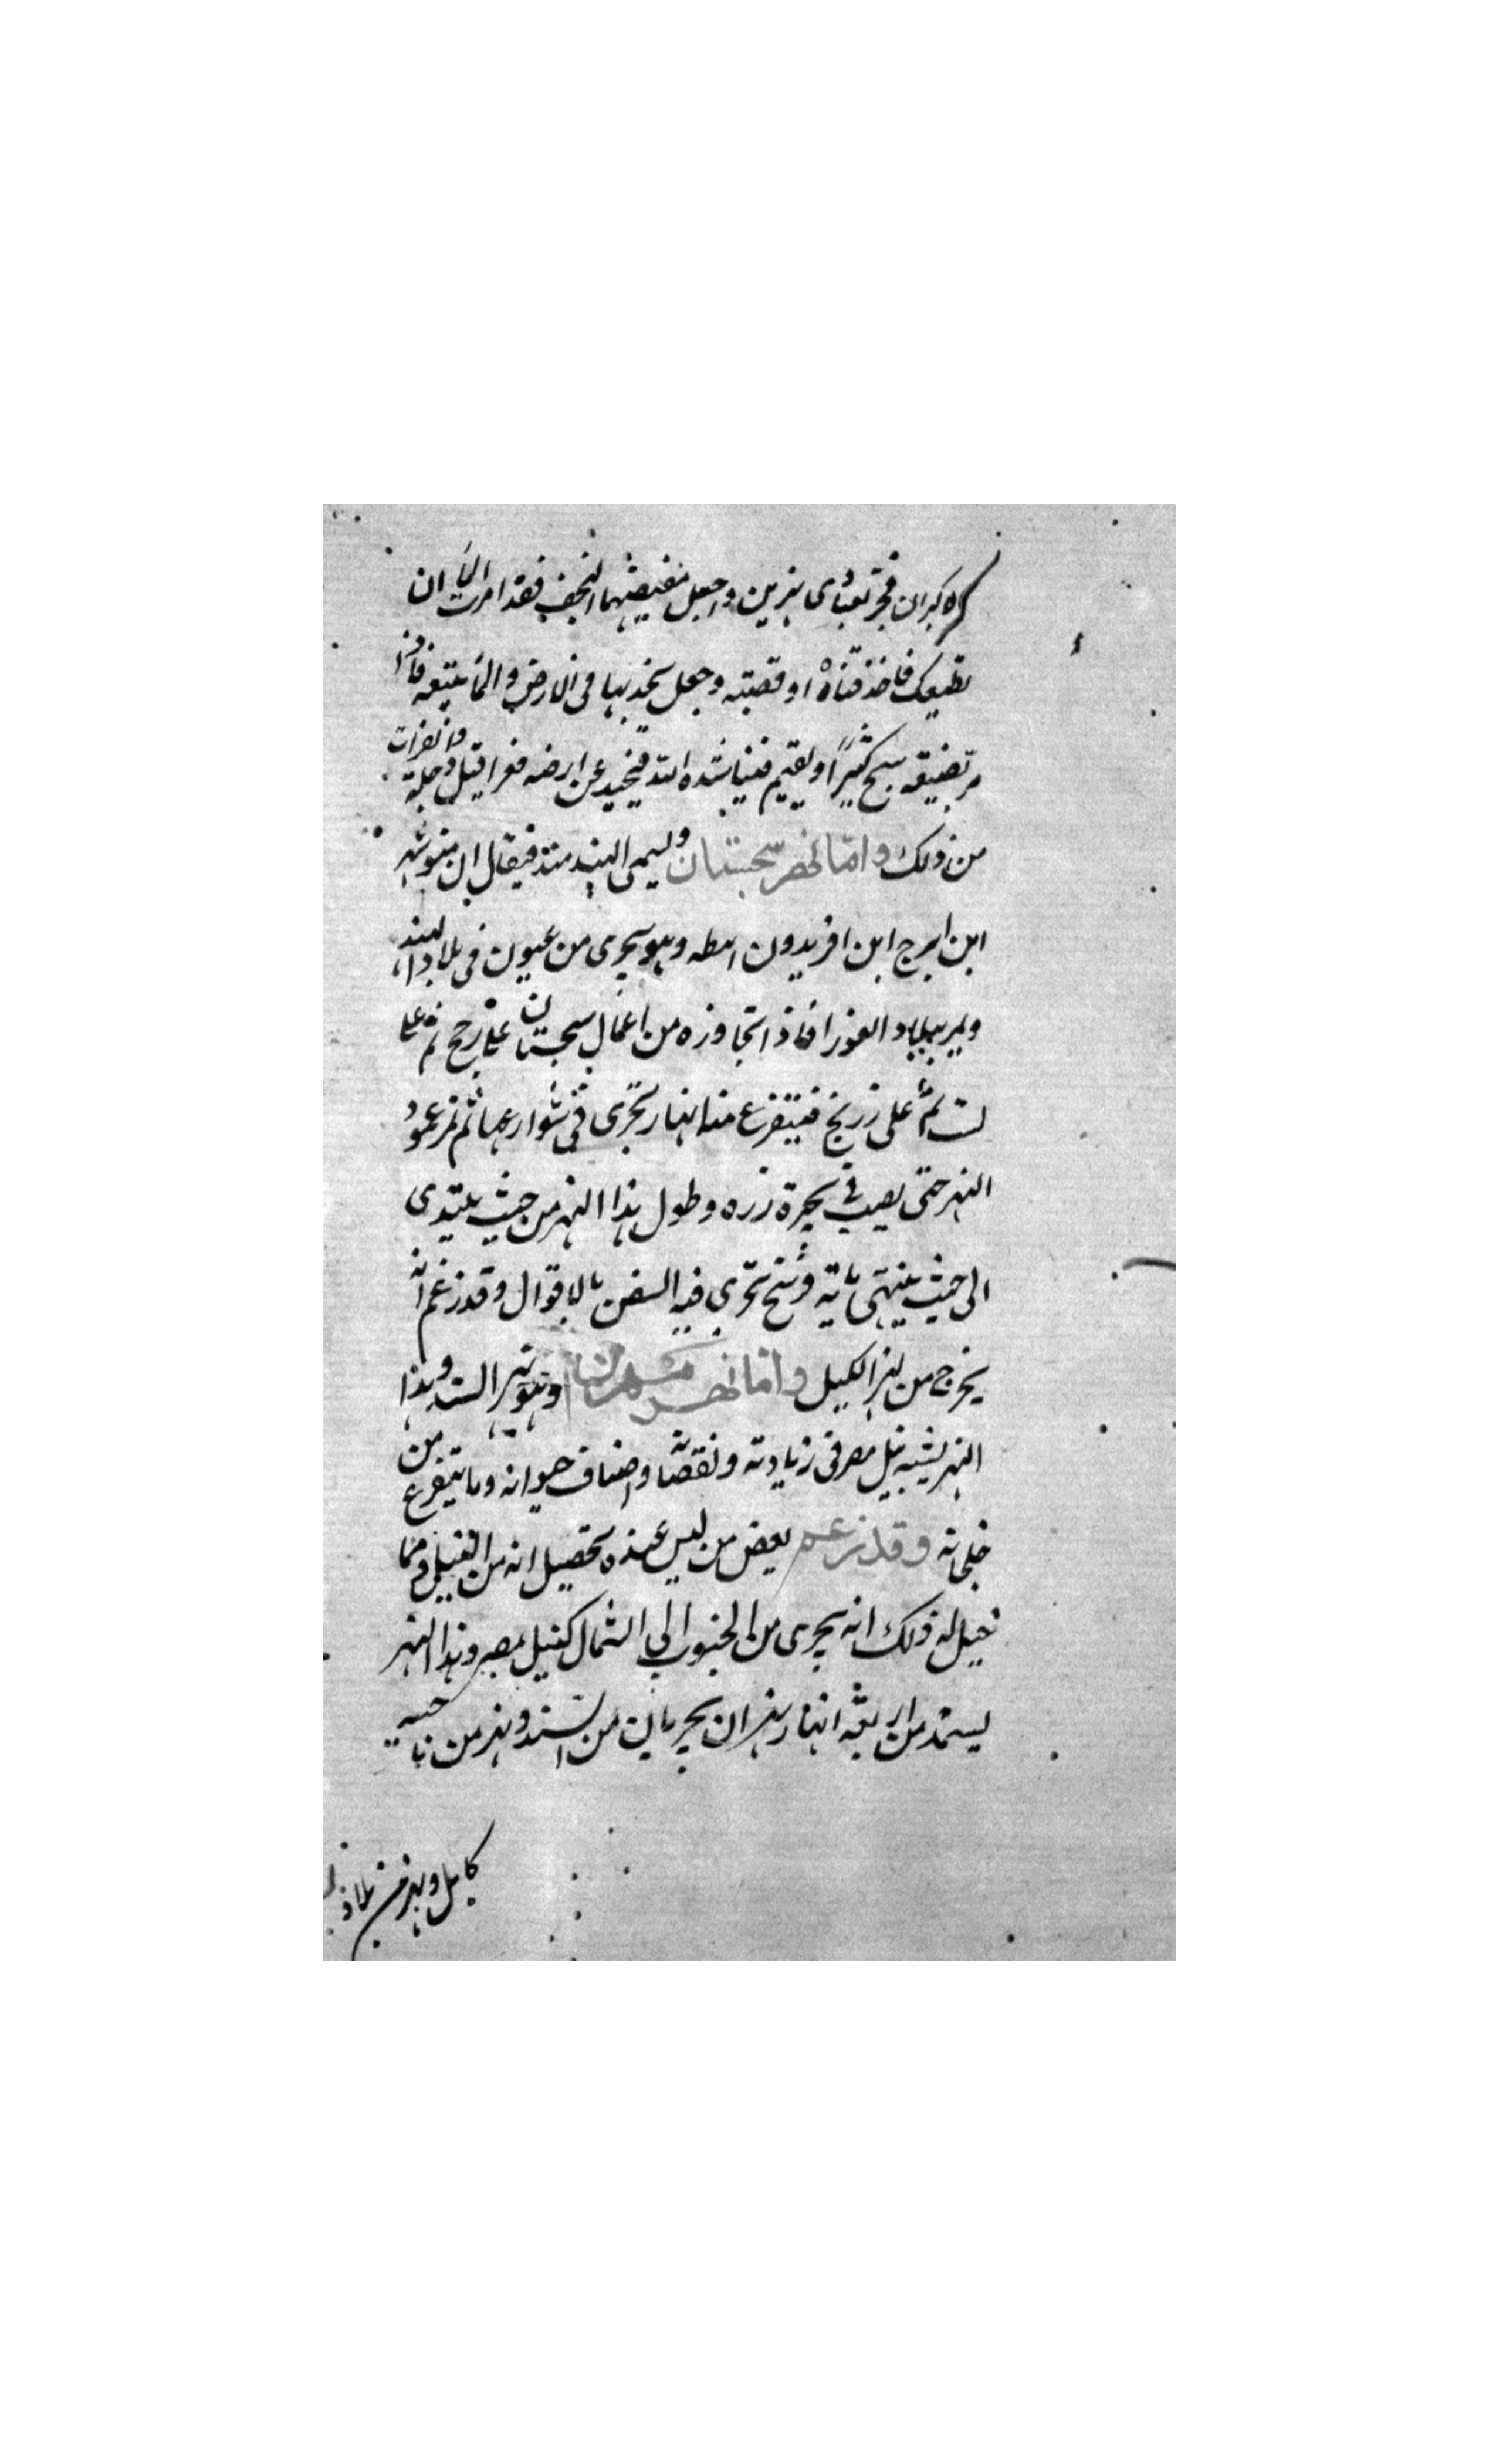 الاكبر ان فجر لعبادى نهرين واجعل مفيضهما النجف فقد امرت الماء ان
يطيعك فاخذ قناة او قصبة وجعل يخد بها فى الارض والماء يتبعه فاذا
مر بضيقه سح كثيرا او يقيم فيناشده الله فيحيد عن ارضه فعراقيل دجلة والفرات
من ذلك واما نهر سجستان ويسمى الهند مند فيقال ان منوشهر
ابن ايرج ابن افريدون انبطه وهو يجرى من عيون فى بلاد الهند
ويمر ببلاد الغور فاذا تجاوزه من اعمال سجستان على رخج ثم على
بست ثم على زرنج فيتفرع منه انهار تجرى فى شوارعها ثم يمر عمود
النهر حتى يصب فى بحيرة زره وطول هذا النهر من حيث يبتدى
الى حيث ينتهى ماية فرسخ تجرى فيه السفن بالاقوال وقد زعم انه
يخرج من نهر الكيل واما نهر مهران وهو نهر السند وهذا
النهر يشبه نيل مصر فى زيادته ونقصانه واصناف حيوانه وما يتفرع من
خلجانه وقد زعم بعض من ليس عنده تحصيل انه من النيل ومما
تحيل له ذلك انه يجرى من الجنوب الى الشمال كنيل مصر وهذا النهر
يستمد من اربعة انهار نهران يجريان من السند ونهر من ناحيه
كابل ونهر من بلاد